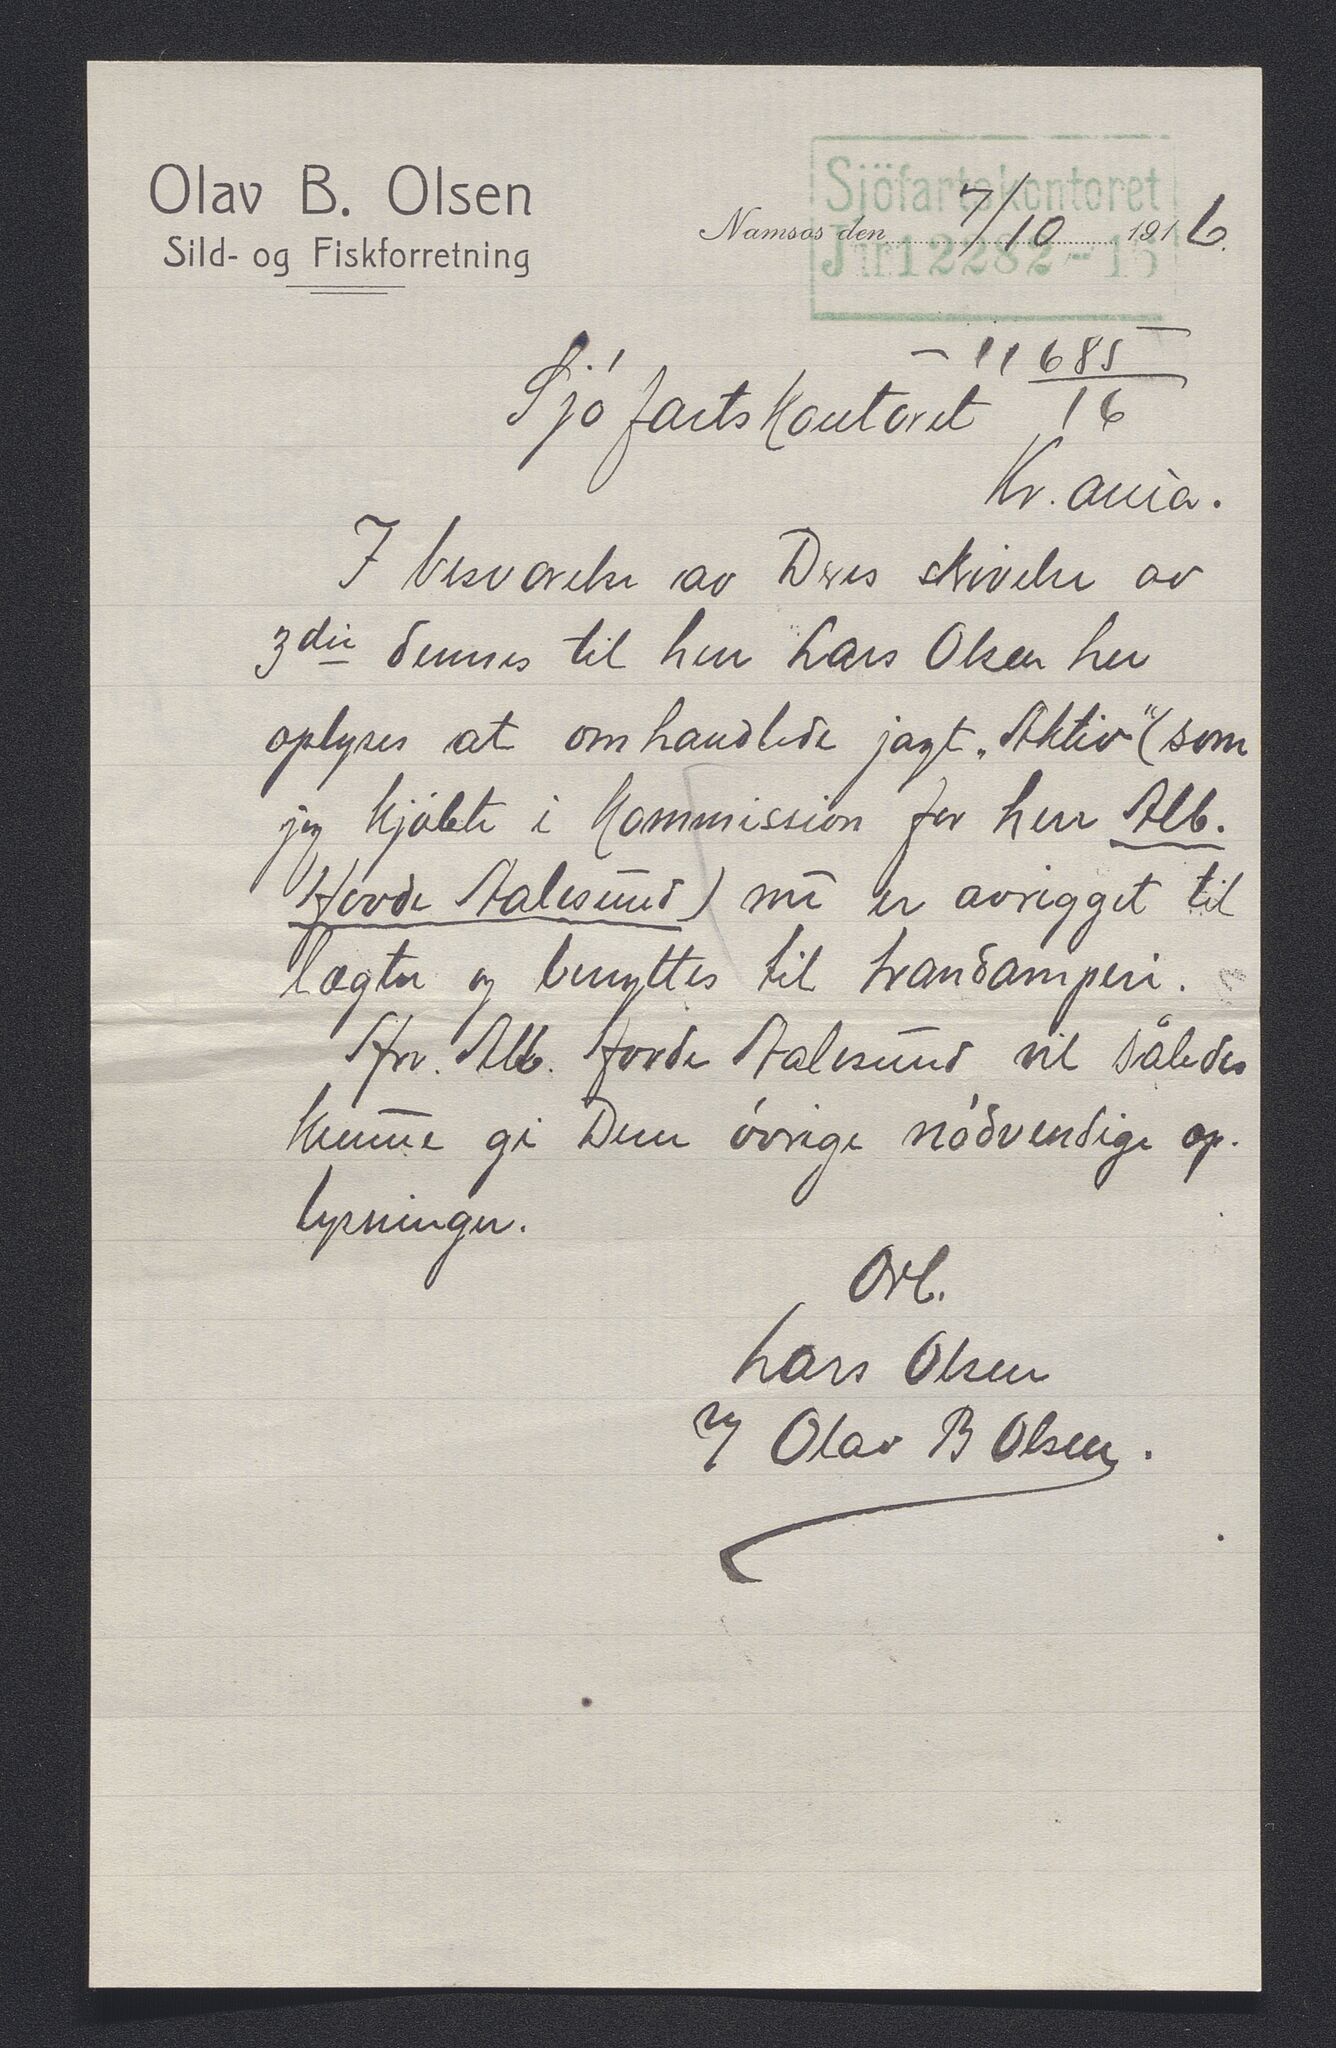 Olav B. Olsen
Sild- og Fiskforretning
Sjöfartskontoret
J nr 12282-16
Namsos den 7/10 1916.
- 11685
16
Sjöfartskontoret
Kr.ania.
I besvarelse av Deres skrivelse av
3die dennes til herr Lars Olsen her
oplyses at omhandlede jagt „Aktiv“ (som
jeg kjöbte i kommission for herr Alb.
Hovde Aalesund) nu er avrigget til
lægter og benyttes til trandamperi.
Hr. Alb. Hovde Aalesund vil således
kunne gi Dem övrige nödvendige op-
lysninger.
Örb.
Lars Olsen
Olav B Olsen.